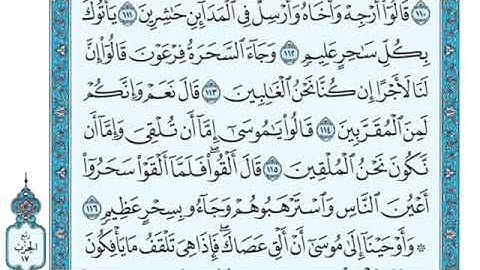 ١١٠ قَالُوٓا۟ أَرْجِهْ وَأَخَاهُ وَأَرْسِلْ فِى ٱلْمَدَآئِنِ حَٰشِرِينَ ١١١ يَأْتُوكَ
بِكُلِّ سَٰحِرٍ عَلِيمٍ ١١٢ وَجَآءَ ٱلسَّحَرَةُ فِرْعَوْنَ قَالُوٓا۟ إِنَّ
لَنَا لَأَجْرًا إِن كُنَّا نَحْنُ ٱلْغَٰلِبِينَ ١١٣ قَالَ نَعَمْ وَإِنَّكُمْ
لَمِنَ ٱلْمُقَرَّبِينَ ١١٤ قَالُوا۟ يَٰمُوسَىٰٓ إِمَّآ أَن تُلْقِىَ وَإِمَّآ أَن
نَّكُونَ نَحْنُ ٱلْمُلْقِينَ ١١٥ قَالَ أَلْقُوا۟ۖ فَلَمَّآ أَلْقَوْا۟ سَحَرُوٓا۟
أَعْيُنَ ٱلنَّاسِ وَٱسْتَرْهَبُوهُمْ وَجَآءُو بِسِحْرٍ عَظِيمٍ ١١٦
۞ وَأَوْحَيْنَآ إِلَىٰ مُوسَىٰٓ أَنْ أَلْقِ عَصَاكَۖ فَإِذَا هِىَ تَلْقَفُ مَا يَأْفِكُونَ
ربع
الحزب
١٧